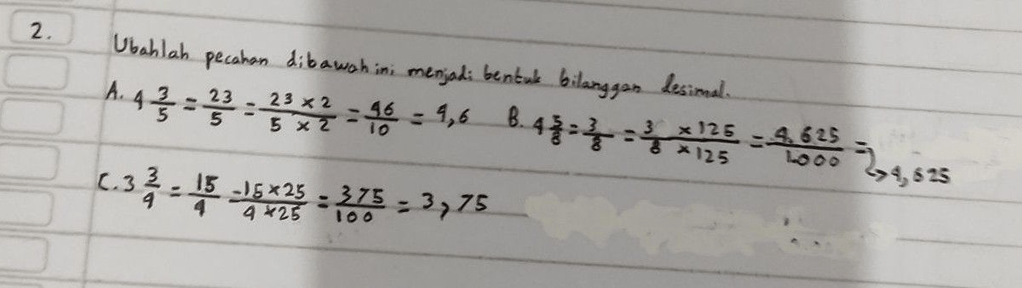 2. Ubahlah pecahan dibawah ini menjadi bentuk bilanggan desimal.
A. 4 3/5 = 23/5 = 23 x 2 / 5 x 2 = 46/10 = 4,6 B. 4 5/8 = 3/8 = 3 x 125 / 8 x 125 = 4.625/1.000 = → 4,625
C. 3 3/4 = 15/4 = 15 x 25 / 4 x 25 = 375/100 = 3,75